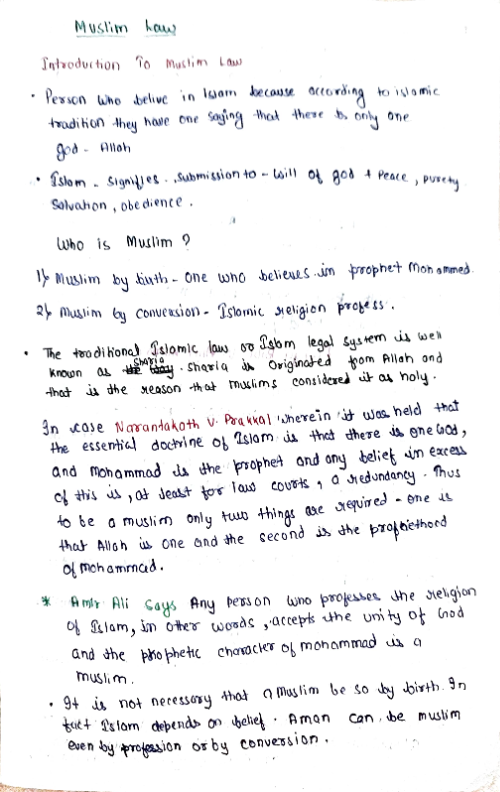 Muslim Law
Introduction To Muslim Law
• Person who belive in Islam because according to islamic
tradition they have one saying that there is only one
god - Allah
• Islam - Signifies - Submission to - will of god + Peace, purety
Salvation, obedience.
Who is Muslim ?
1) Muslim by birth - One who believes in prophet Mohammed.
2) Muslim by conversion - Islamic religion profess.
• The traditional Islamic law or Islam legal system is well
known as sharia. sharia is originated from Allah and
that is the reason that muslims considered it as holy.
In case Narantakath v. Prakkal wherein it was held that
the essential doctrine of Islam is that there is one God,
and Mohammad is the prophet and any belief in excess
of this is, at least for law courts, a redundancy. Thus
to be a muslim only two things are required - one is
that Allah is one and the second is the prophethood
of Mohammad.
* Amir Ali Says Any person who professes the religion
of Islam, in other words, accepts the unity of God
and the prophetic character of mohammad is a
muslim.
• It is not necessary that a Muslim be so by birth. In
fact Islam depends on belief. A man can be muslim
even by profession or by conversion.